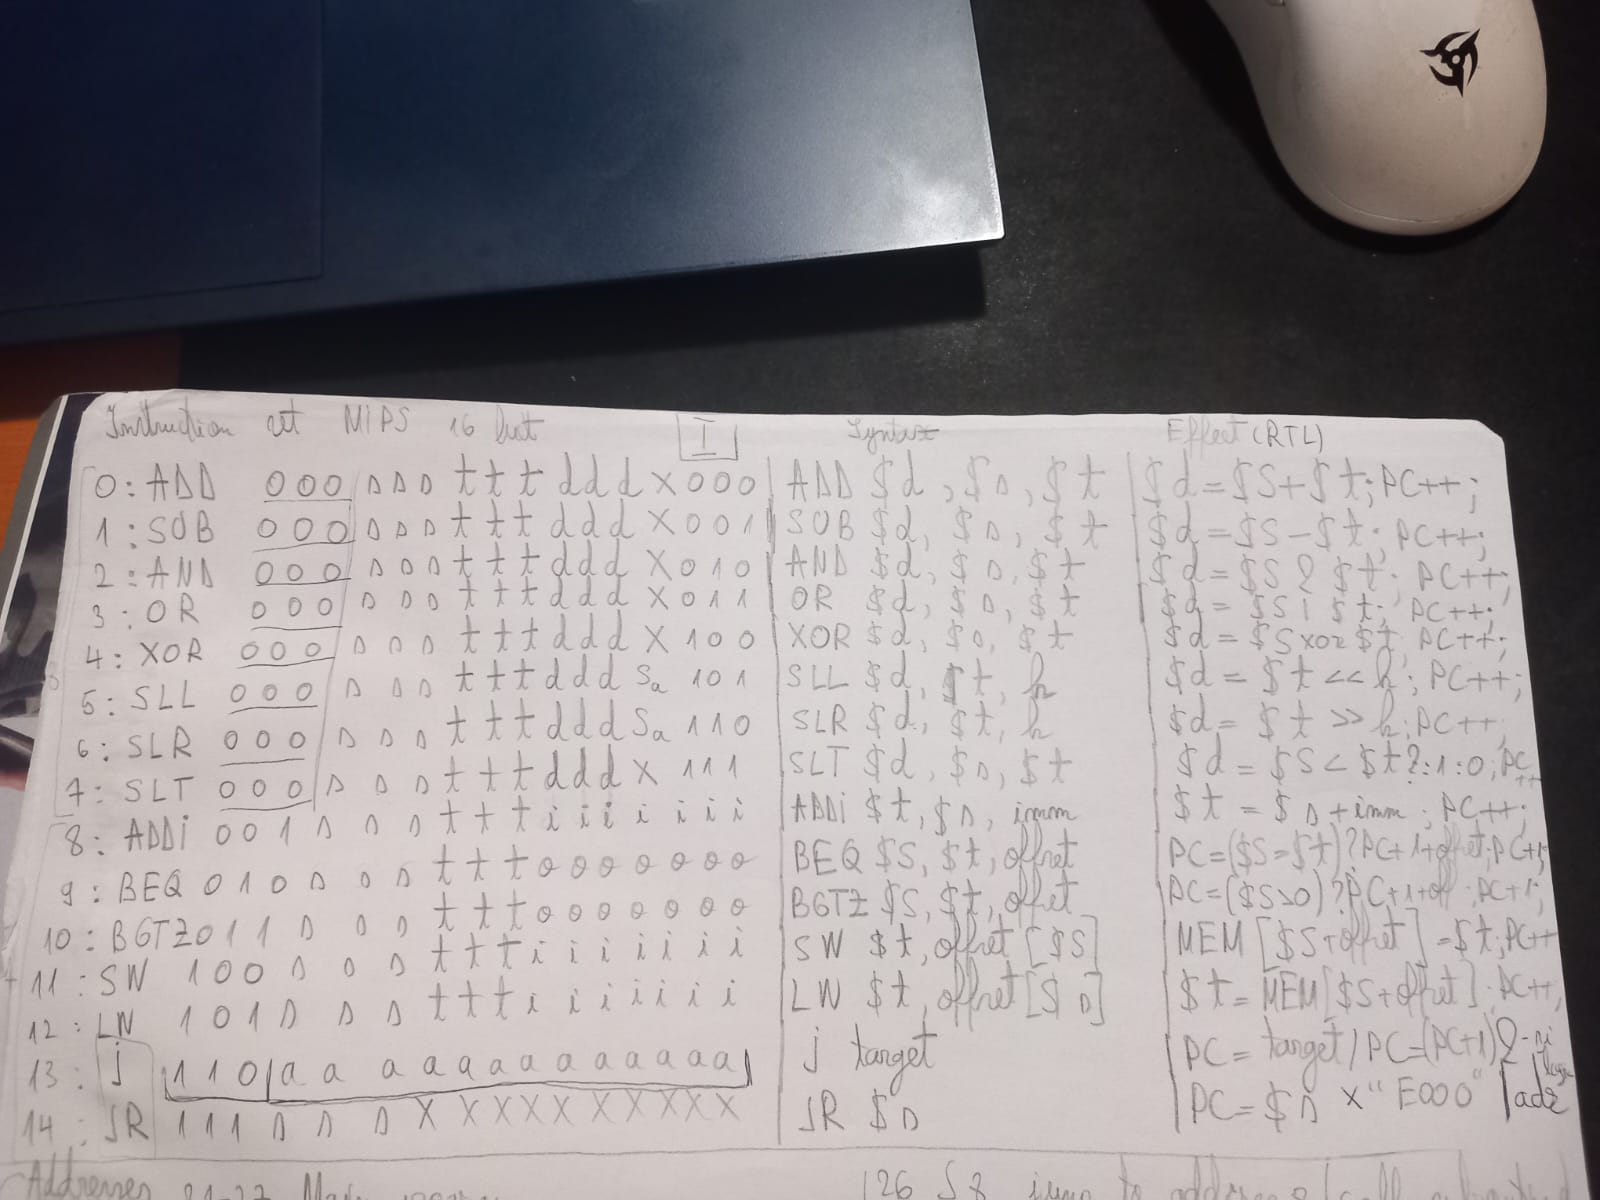 Instruction set MIPS 16 bit I Syntax Effect (RTL)
0: ADD 000 s s s t t t d d d x 000 ADD $d, $s, $t $d = $s + $t; PC++;
1: SUB 000 s s s t t t d d d x 001 SUB $d, $s, $t $d = $s - $t; PC++;
2: AND 000 s s s t t t d d d x 010 AND $d, $s, $t $d = $s & $t; PC++;
3: OR 000 s s s t t t d d d x 011 OR $d, $s, $t $d = $s | $t; PC++;
4: XOR 000 s s s t t t d d d x 100 XOR $d, $s, $t $d = $s xor $t; PC++;
5: SLL 000 s s s t t t d d d Sa 101 SLL $d, $t, h $d = $t << h; PC++;
6: SLR 000 s s s t t t d d d Sa 110 SLR $d, $t, h $d = $t >> h; PC++;
7: SLT 000 s s s t t t d d d x 111 SLT $d, $s, $t $d = $s < $t ?: 1 : 0; PC++
8: ADDi 001 s s s t t t i i i i i i i ADDi $t, $s, imm $t = $s + imm; PC++;
9: BEQ 010 s s s t t t o o o o o o o BEQ $s, $t, offset PC=($s=$t)?PC+1+offset;PC+1;
10: BGTZ 011 s s s t t t o o o o o o o BGTZ $s, $t, offset PC=($s>0)?PC+1+off; PC+1;
11: SW 100 s s s t t t i i i i i i i SW $t, offset [$s] MEM[$s+offset] = $t; PC++
12: LW 101 s s s t t t i i i i i i i LW $t, offset [$s] $t = MEM[$s+offset]; PC++;
13: j 110 a a a a a a a a a a a a a j target PC = target / PC=(PC+1) &
14: JR 111 s s s x x x x x x x x x x JR $s PC = $s x"E000"
Addresses 21-27 126 jump to address